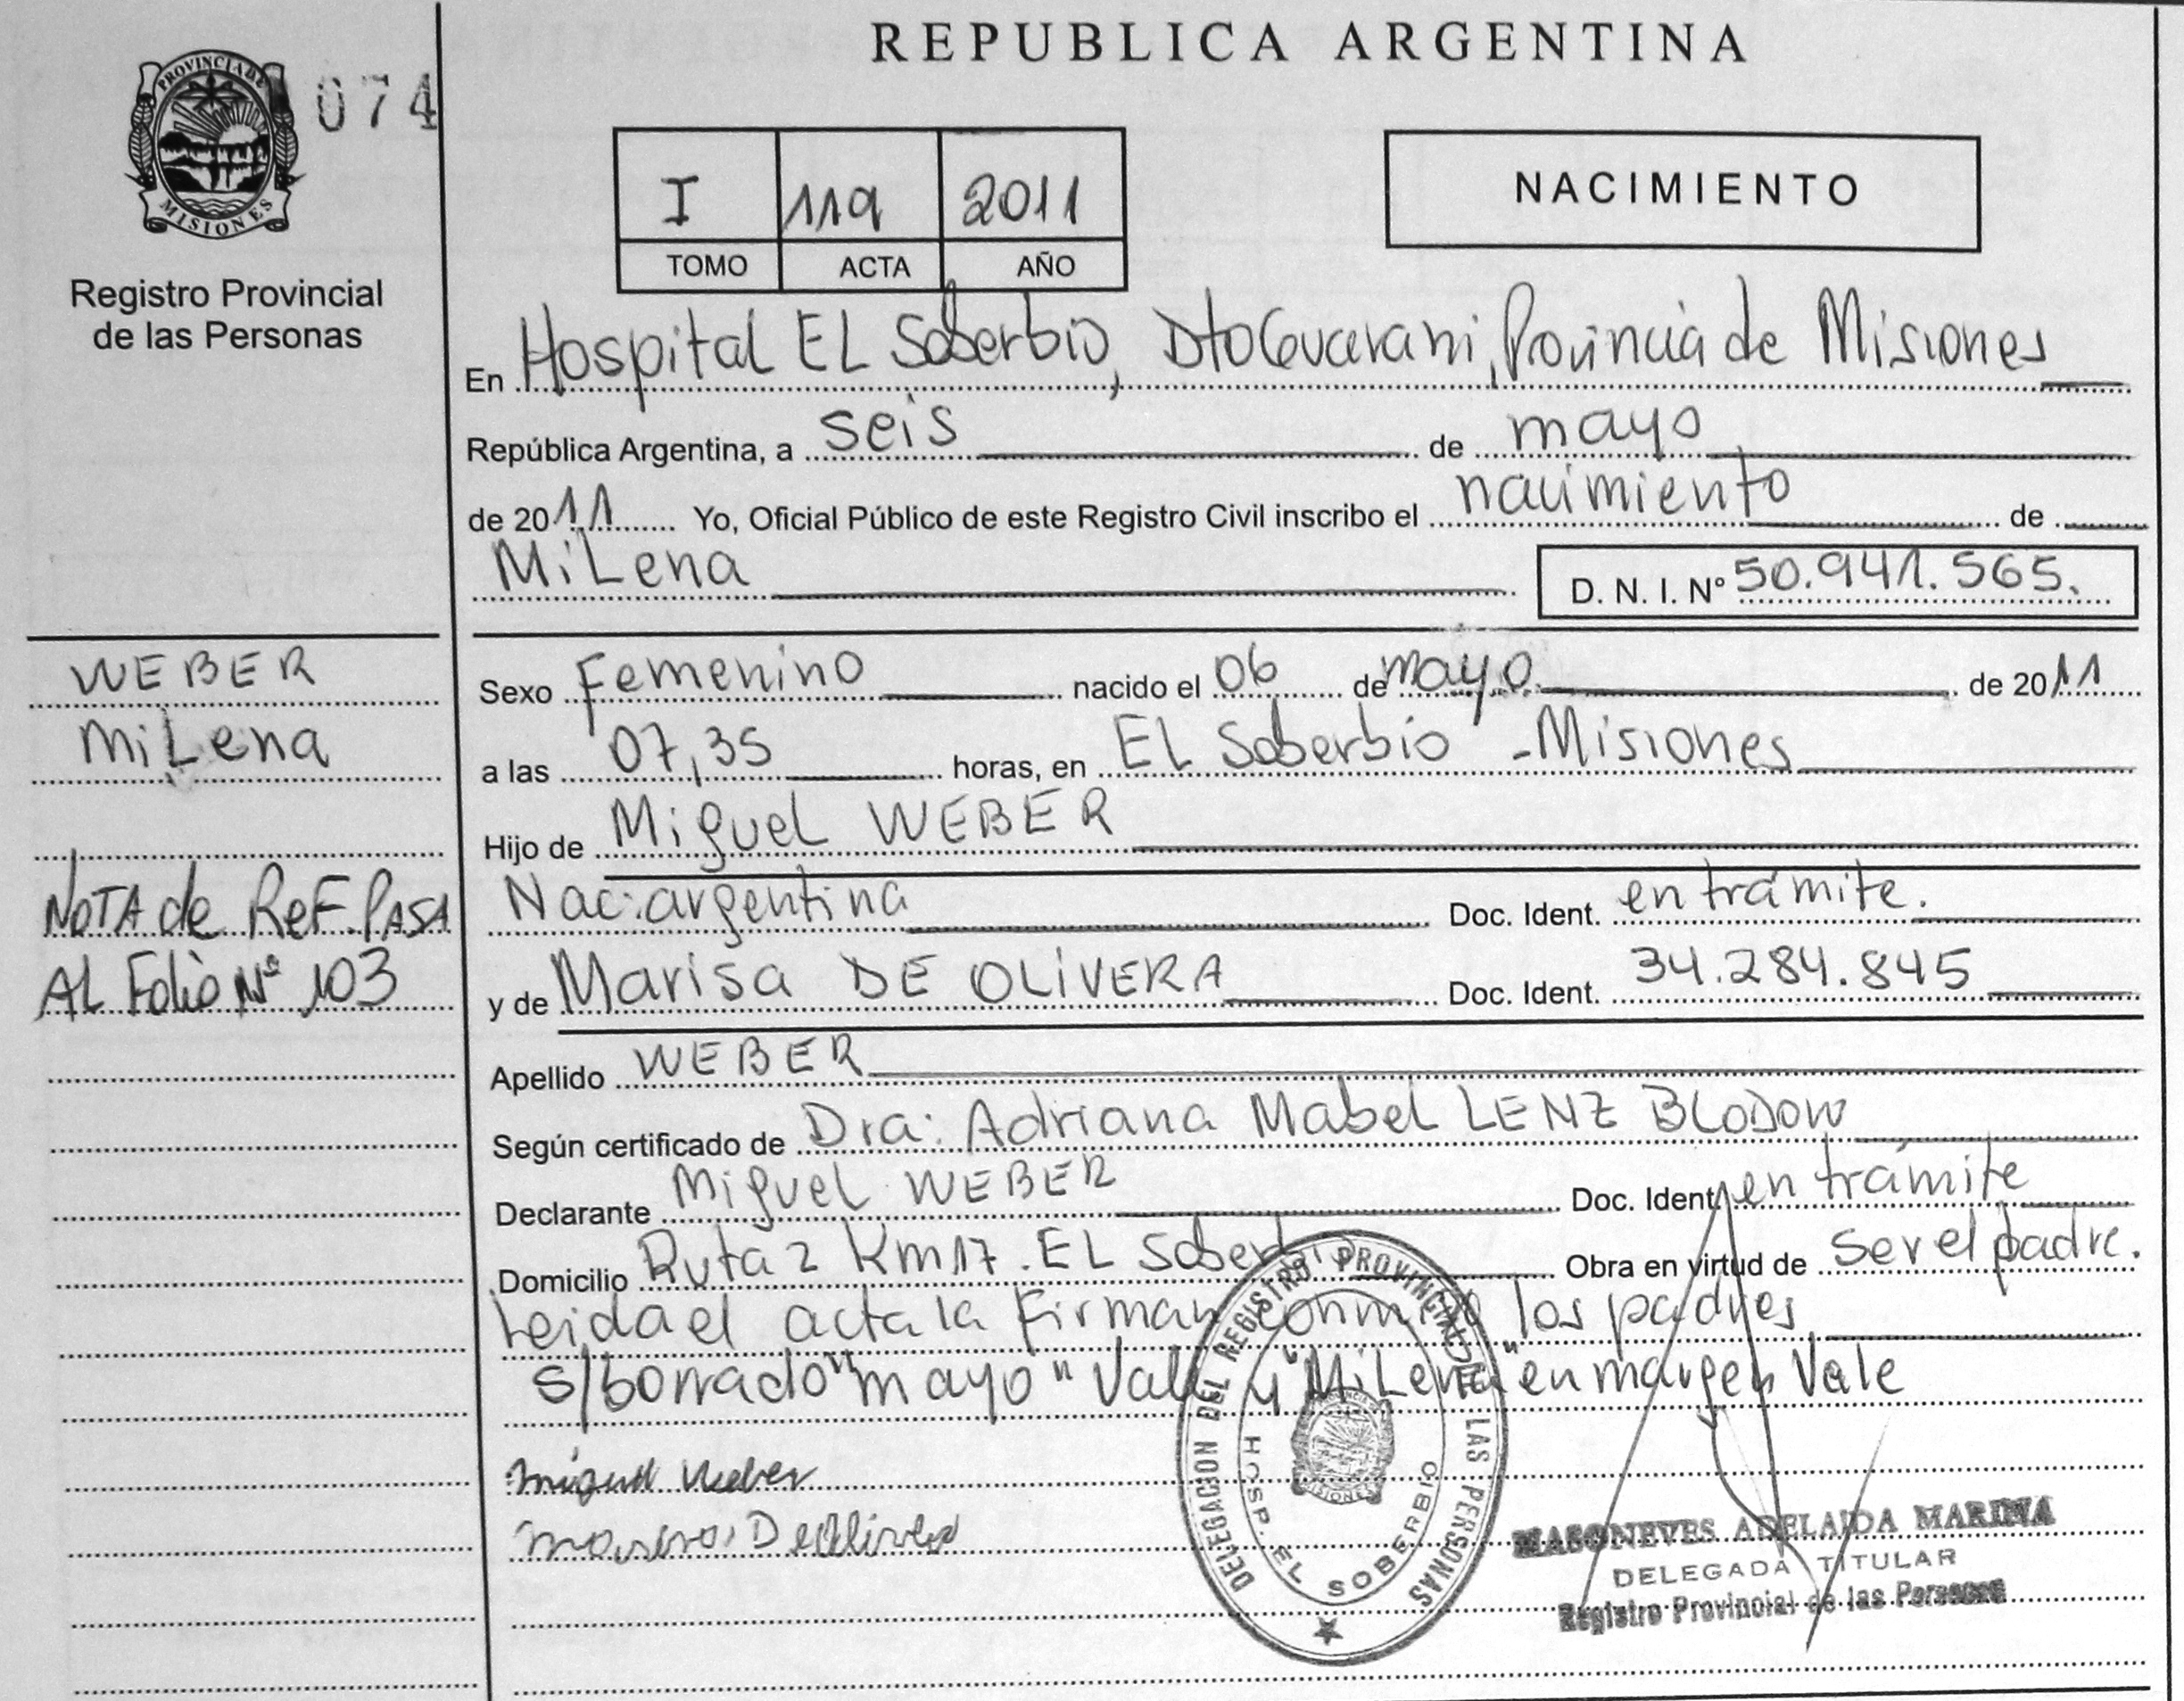 REPUBLICA ARGENTINA
PROVINCIA DE
MISIONES
074
Registro Provincial
de las Personas
I 119 2011
TOMO ACTA AÑO
NACIMIENTO
En Hospital EL Soberbio, Dto Guarani, Provincia de Misiones
República Argentina, a seis de mayo
de 2011 Yo, Oficial Público de este Registro Civil inscribo el nacimiento de
MiLena D. N. I. Nº 50.941.565.
WEBER
MiLena
Sexo Femenino nacido el 06 de mayo de 2011
a las 07,35 horas, en EL Soberbio - Misiones
Hijo de Miguel WEBER
NOTA de ReF. PASA
AL Folio Nº 103
Nac: argentina Doc. Ident. en trámite.
y de Marisa DE OLIVERA Doc. Ident. 34.284.845
Apellido WEBER
Según certificado de Dra: Adriana Mabel LENZ BLODOW
Declarante Miguel WEBER Doc. Ident. en trámite
Domicilio Ruta 2 Km17. EL Soberbio Obra en virtud de ser el padre.
Leida el acta la Firman conmigo los padres
s/borrado "mayo" Vale y "MiLena" en margen Vale
Miguel Weber
DELEGACION DEL REGISTRO PROVINCIAL DE LAS PERSONAS
HOSP. EL SOBERBIO
MISIONES
MASONEVES ADELAIDA MARINA
DELEGADA TITULAR
Registro Provincial de las Personas